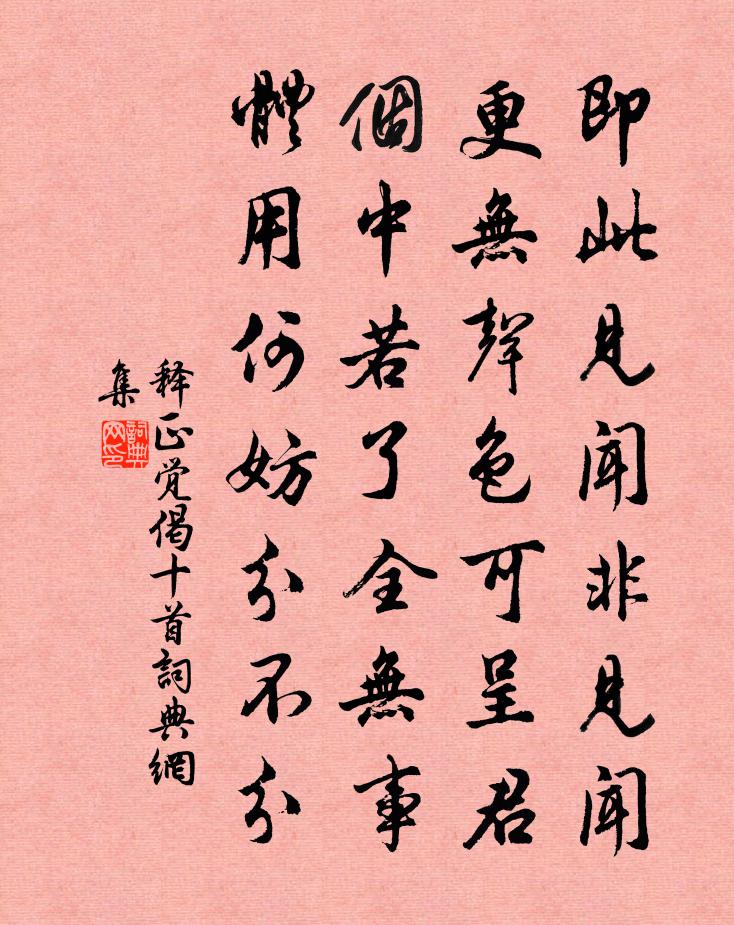 即此見聞非見聞
更無聲色可呈君
個中若了全無事
體用何妨分不分
释正觉偈十首詞典網
集
詞典
网印